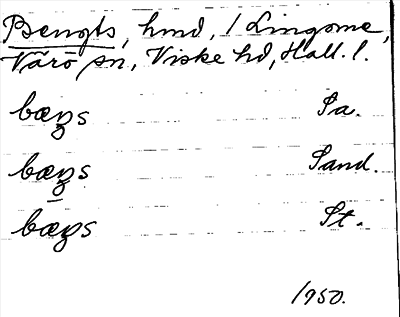 Bengts, hmd, / Lingome,
Värö sn, Viske hd, Hall. l.
bæŋs Sa.
bæŋs Sand.
bæŋs St.
1950.